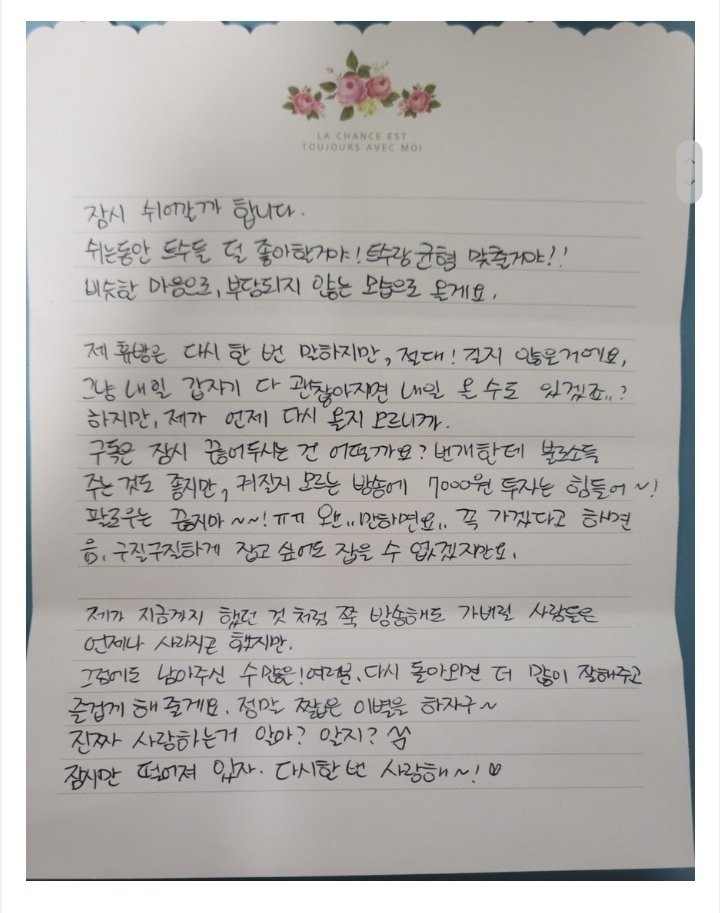 LA CHANCE EST
TOUJOURS AVEC MOI
잠시 쉬어갈까 합니다.
쉬는동안 트수들 덜 좋아할거야! 트수랑 균형 맞출거야!!
비슷한 마음으로, 부담되지 않는 모습으로 올게요.
제 휴방은 다시 한 번 말하지만, 절대! 길지 않을거에요.
그냥 내일 갑자기 다 괜찮아지면 내일 올 수도 있겠죠..?
하지만, 제가 언제 다시 올지 모르니까.
구독은 잠시 끊어두시는 건 어떨까요? 번개한테 불로소득
주는 것도 좋지만, 켜질지 모르는 방송에 7000원 투자는 힘들어~!
팔로우는 끊지마~~! ㅠㅠ 왠..만하면요.. 꼭 가겠다고 하면
음. 구질구질하게 잡고 싶어도 잡을 수 없겠지만요.
제가 지금까지 했던 것 처럼 쭉 방송해도 가버릴 사람들은
언제나 사라지곤 했지만.
그럼에도 남아주신 수많은! 여러분. 다시 돌아오면 더 많이 잘해주고
즐겁게 해 줄게요. 정말 짧은 이별을 하자구~
진짜 사랑하는거 알아? 알지?
잠시만 떨어져 있자. 다시한 번 사랑해~! ♡